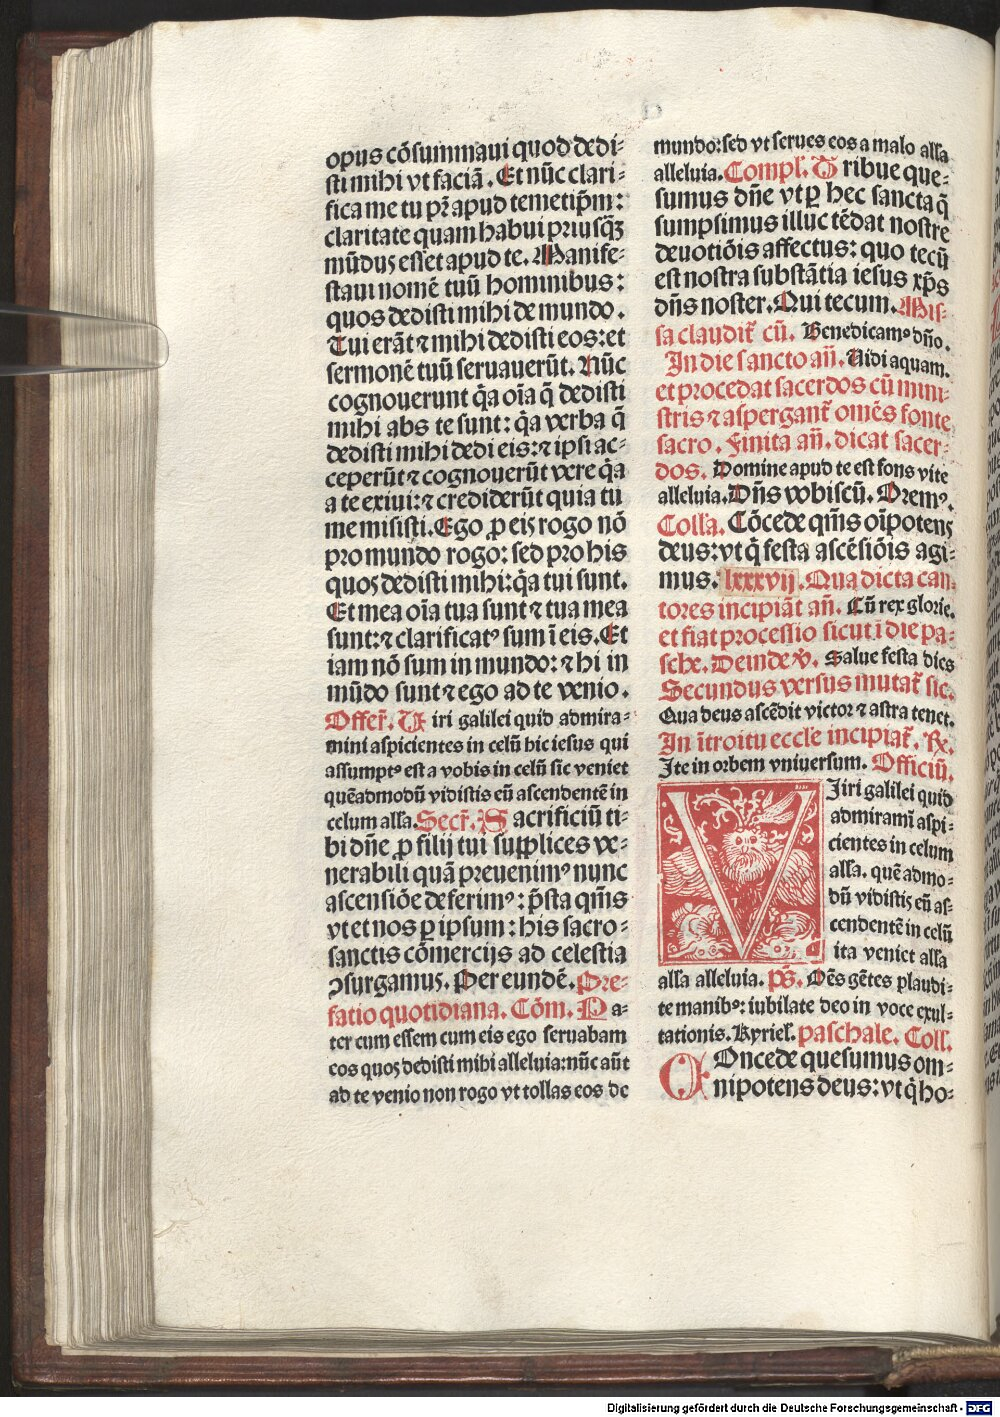 opus cõsummaui quod dedi⸗
sti mihi vt faciã. Et nũc clari⸗
fica me tu pr̃ apud temetip̃m:
claritate quam habui priusq̃ꝫ
mũdus esset apud te. Manife⸗
staui nomẽ tuũ hominibus:
quos dedisti mihi de mundo.
Tui erãt ⁊ mihi dedisti eos: et
sermonẽ tuũ seruauerũt. Nũc
cognouerunt q̃a oĩa q̃ dedisti
mihi abs te sunt: q̃a verba q̃
dedisti mihi dedi eis: ⁊ ipsi ac⸗
ceperũt ⁊ cognouerũt vere q̃a
a te exiui: ⁊ crediderũt quia tu
me misisti. Ego ꝓ eis rogo nõ
pro mundo rogo: sed pro his
quos dedisti mihi: q̃a tui sunt.
Et mea oĩa tua sunt ⁊ tua mea
sunt: ⁊ clarificatꝰ sum ĩ eis. Et
iam nõ sum in mundo: ⁊ hi in
mũdo sunt ⁊ ego ad te venio.
Offer̃. Viri galilei quid admira⸗
mini aspicientes in celũ hic iesus qui
assumptꝰ est a vobis in celũ sic veniet
quẽadmodũ vidistis eũ ascendentẽ in
celum alła. Secr̃. Sacrificiũ ti⸗
bi dñe ꝓ filij tui supplices ve⸗
nerabili quã preuenimꝰ nunc
ascensiõe deferimꝰ: p̃sta q̃ms
vt et nos ꝑ ipsum: his sacro⸗
sanctis cõmercijs ad celestia
ꝯsurgamus. Per eundẽ. Pre⸗
fatio quotidiana. Cõm. Pa⸗
ter cum essem cum eis ego seruabam
eos quos dedisti mihi alleluia: nũc aũt
ad te venio non rogo vt tollas eos de
mundo: sed vt serues eos a malo alła
alleluia. Compł. Tribue que⸗
sumus dñe vt ꝑ hec sancta q̃
sumpsimus illuc tẽdat nostre
deuotiõis affectus: quo tecũ
est nostra substãtia iesus xp̃s
dñs noster. Qui tecum. Mis⸗
sa claudit̃ cũ. Benedicamꝰ dño.
In die sancto añ. Vidi aquam.
et procedat sacerdos cũ mini⸗
stris ⁊ aspergant̃ omẽs fonte
sacro. Finita añ. dicat sacer⸗
dos. Domine apud te est fons vite
alleluia. Dñs vobiscũ. Oremꝰ.
Colła. Cõcede q̃ms oĩpotens
deus: vt q̃ festa ascẽsiõis agi⸗
mus. lxxxvij. Qua dicta can⸗
tores incipiãt añ. Cũ rex glorie.
et fiat processio sicut ĩ die pa⸗
sche. Deinde ℣. Salue festa dies
Secundus versus mutat̃ sic.
Qua deus ascẽdit victor ⁊ astra tenet.
In ĩtroitu eccłe incipiat̃. ℞.
Ite in orbem vniuersum. Officiũ.
Viri galilei quid
admiramĩ aspi⸗
cientes in celum
alła. quẽadmo⸗
dũ vidistis eũ as⸗
cendentẽ in celũ
ita veniet alła
alła alleluia. p̃s. Oẽs gẽtes plaudi⸗
te manibꝰ: iubilate deo in voce exul⸗
tationis. Kyriel̃. paschale. Coll.
COncede quesumus om⸗
nipotens deus: vt q̃ ho⸗
Digitalisierung gefördert durch die Deutsche Forschungsgemeinschaft - DFG